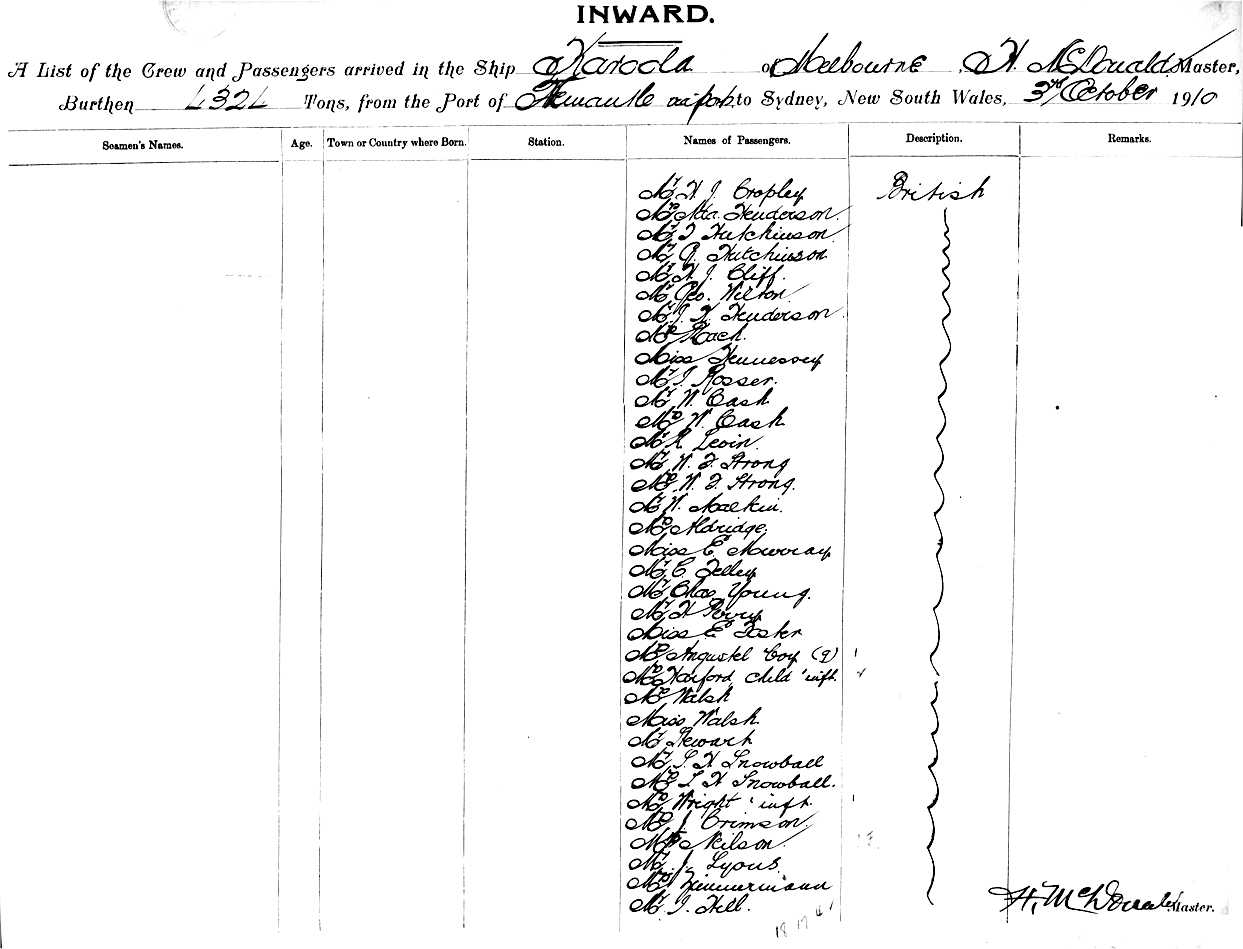 INWARD.
A List of the Crew and Passengers arrived in the Ship Karoola of Melbourne, H. McDonald Master,
Burthen Tons, from the Port of Fremantle via ports to Sydney, New South Wales, 3rd October 1910
Seamen's Names. Age. Town or Country where Born. Station. Names of Passengers. Description. Remarks.
Mr H J Cropley British
Mrs Henderson
Mr J Hutchinson
Mr G. Hutchinson
Mr H J. Cliff.
Mr Geo. Wilton
Mr J. H. Henderson
Mrs
Miss Hennessey
Mr J. Rosser.
Mr W. Cash
Mrs W. Cash
Mr R Levin.
Mr W. J. Strong
Mrs W. J. Strong.
Mr W. Malkin.
Mrs Aldridge.
Miss E Murray
Mr C. Jelley
Mr Chas Young.
Mr H Perry
Miss E Foster
Mrs boy (9) 1
Mrs Harford child inft
Mrs Walsh
Miss Walsh.
Mr Stewart
Mr S. H Snowball
Mrs S H Snowball.
Mrs Wright inft. 1
J. Crimson
Neilson
Mr J. Lyons
Mrs Zimmermann
Mr J. Hill.
H. McDonald Master.
18 17 4 1